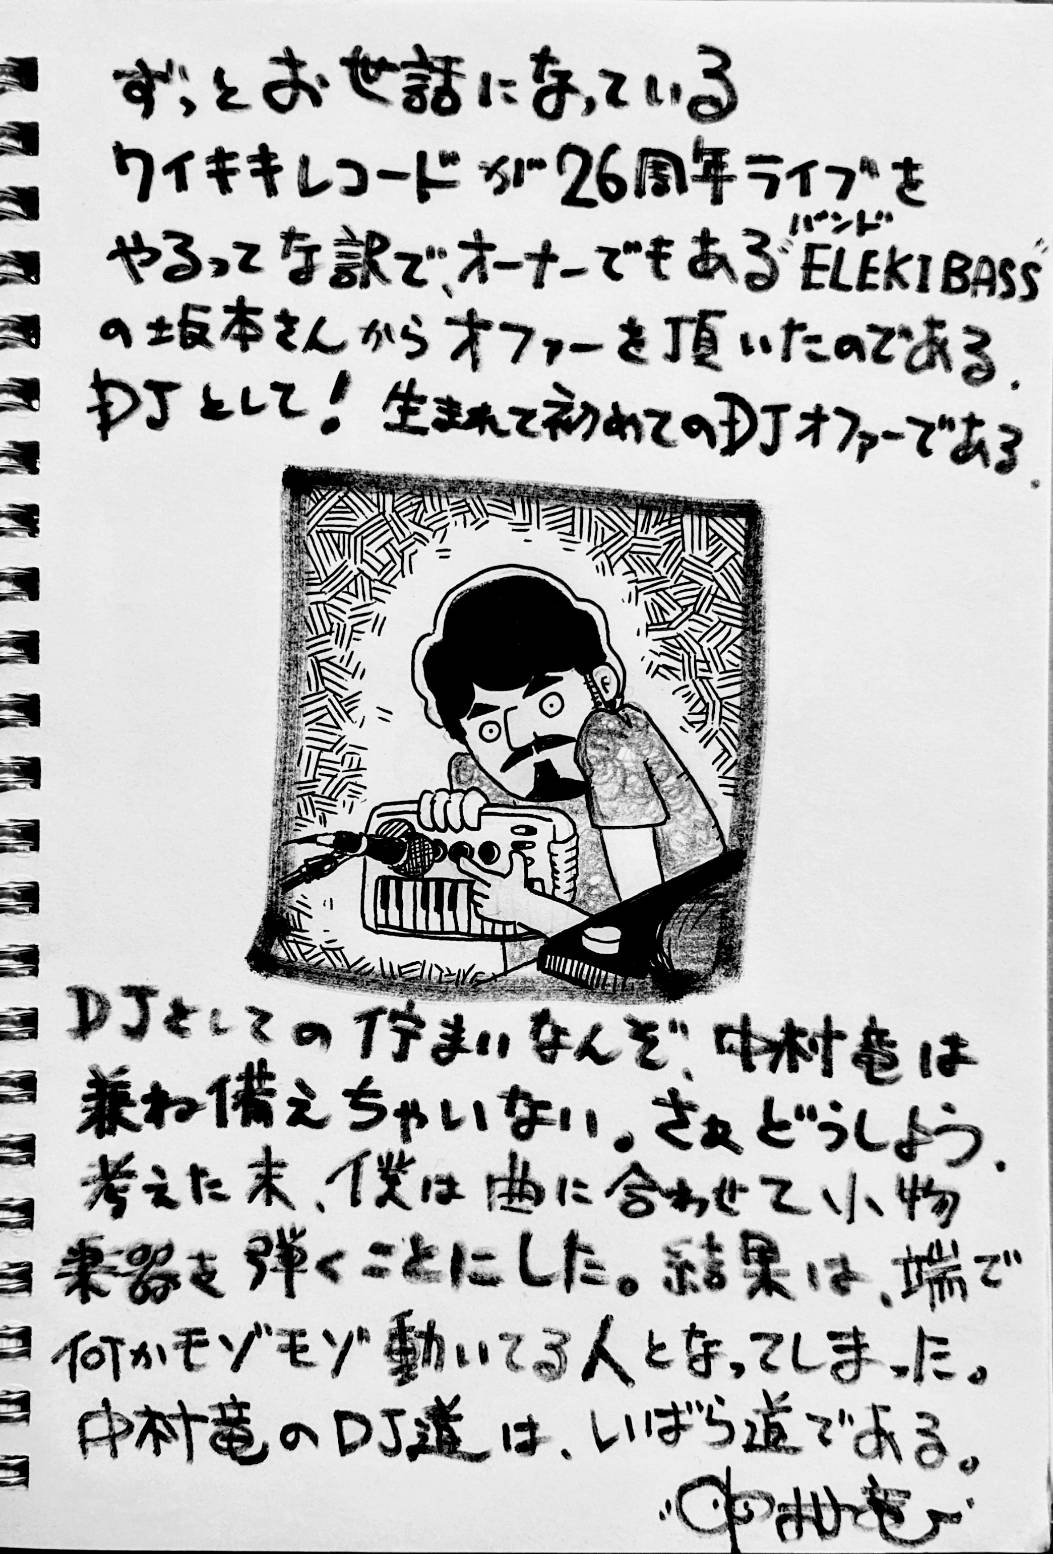 ずっとお世話になっている
ワイキキレコードが26周年ライブを
やるってな訳で、オーナーでもある"ELEKIBASS"
バンド
の坂本さんからオファーを頂いたのである.
DJとして! 生まれて初めてのDJオファーである.
DJとしての佇まいなんぞ、中村竜は
兼ね備えちゃいない。さぁどうしよう.
考えた末、僕は曲に合わせて小物
楽器を弾くことにした。結果は、端で
何かモゾモゾ動いてる人となってしまった。
中村竜のDJ道は、いばら道である。